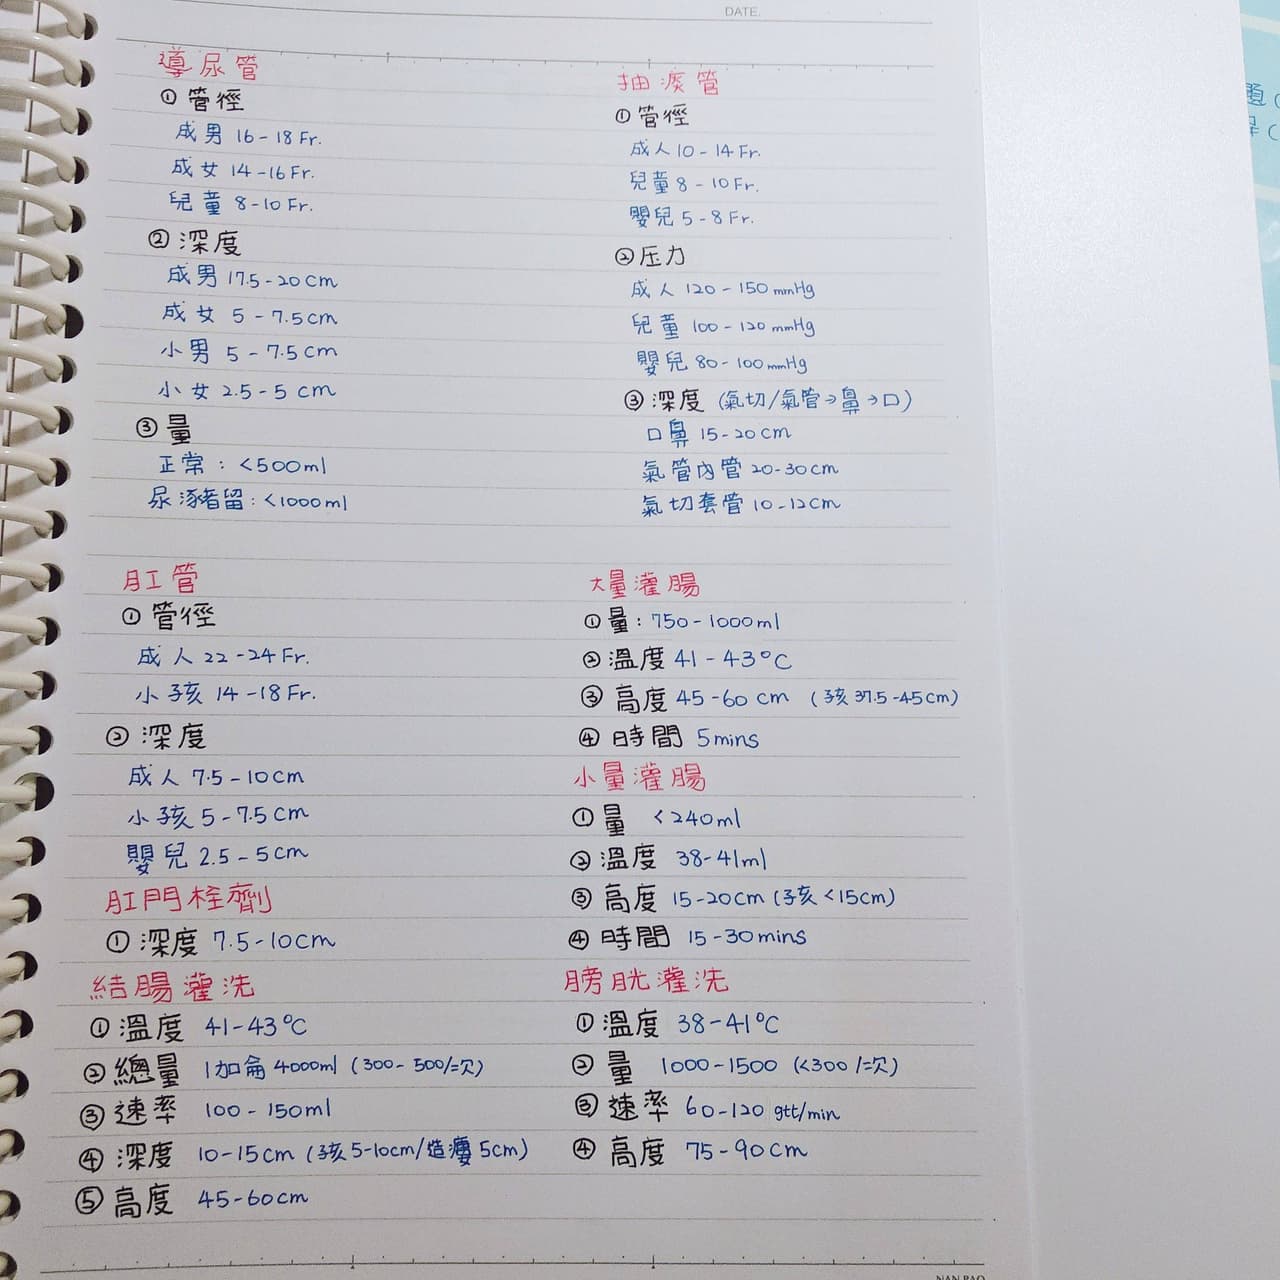 DATE.
導尿管
① 管徑
成男 16-18 Fr.
成女 14-16 Fr.
兒童 8-10 Fr.
② 深度
成男 17.5-20 cm
成女 5-7.5cm
小男 5-7.5cm
小女 2.5-5 cm
③ 量
正常：<500ml
尿瀦留：<1000ml
抽痰管
① 管徑
成人 10-14 Fr.
兒童 8-10 Fr.
嬰兒 5-8 Fr.
② 压力
成人 120-150 mmHg
兒童 100-120 mmHg
嬰兒 80-100 mmHg
③ 深度 (氣切/氣管→鼻→口)
口鼻 15-20cm
氣管內管 20-30cm
氣切套管 10-12cm
肛管
① 管徑
成人 22-24 Fr.
小孩 14-18 Fr.
② 深度
成人 7.5-10cm
小孩 5-7.5cm
嬰兒 2.5-5cm
肛門栓劑
① 深度 7.5-10cm
結腸灌洗
① 溫度 41-43°C
② 總量 1加侖 4000ml (300-500/=次)
③ 速率 100-150ml
④ 深度 10-15cm (孩5-10cm/造瘻5cm)
⑤ 高度 45-60cm
大量灌腸
① 量：750-1000ml
② 溫度 41-43°C
③ 高度 45-60 cm (孩 37.5-45cm)
④ 時間 5mins
小量灌腸
① 量 <240ml
② 溫度 38-41ml
③ 高度 15-20cm (孩<15cm)
④ 時間 15-30mins
膀胱灌洗
① 溫度 38-41°C
② 量 1000-1500 (<300/=次)
③ 速率 60-120 gtt/min
④ 高度 75-90cm
NAN BAO